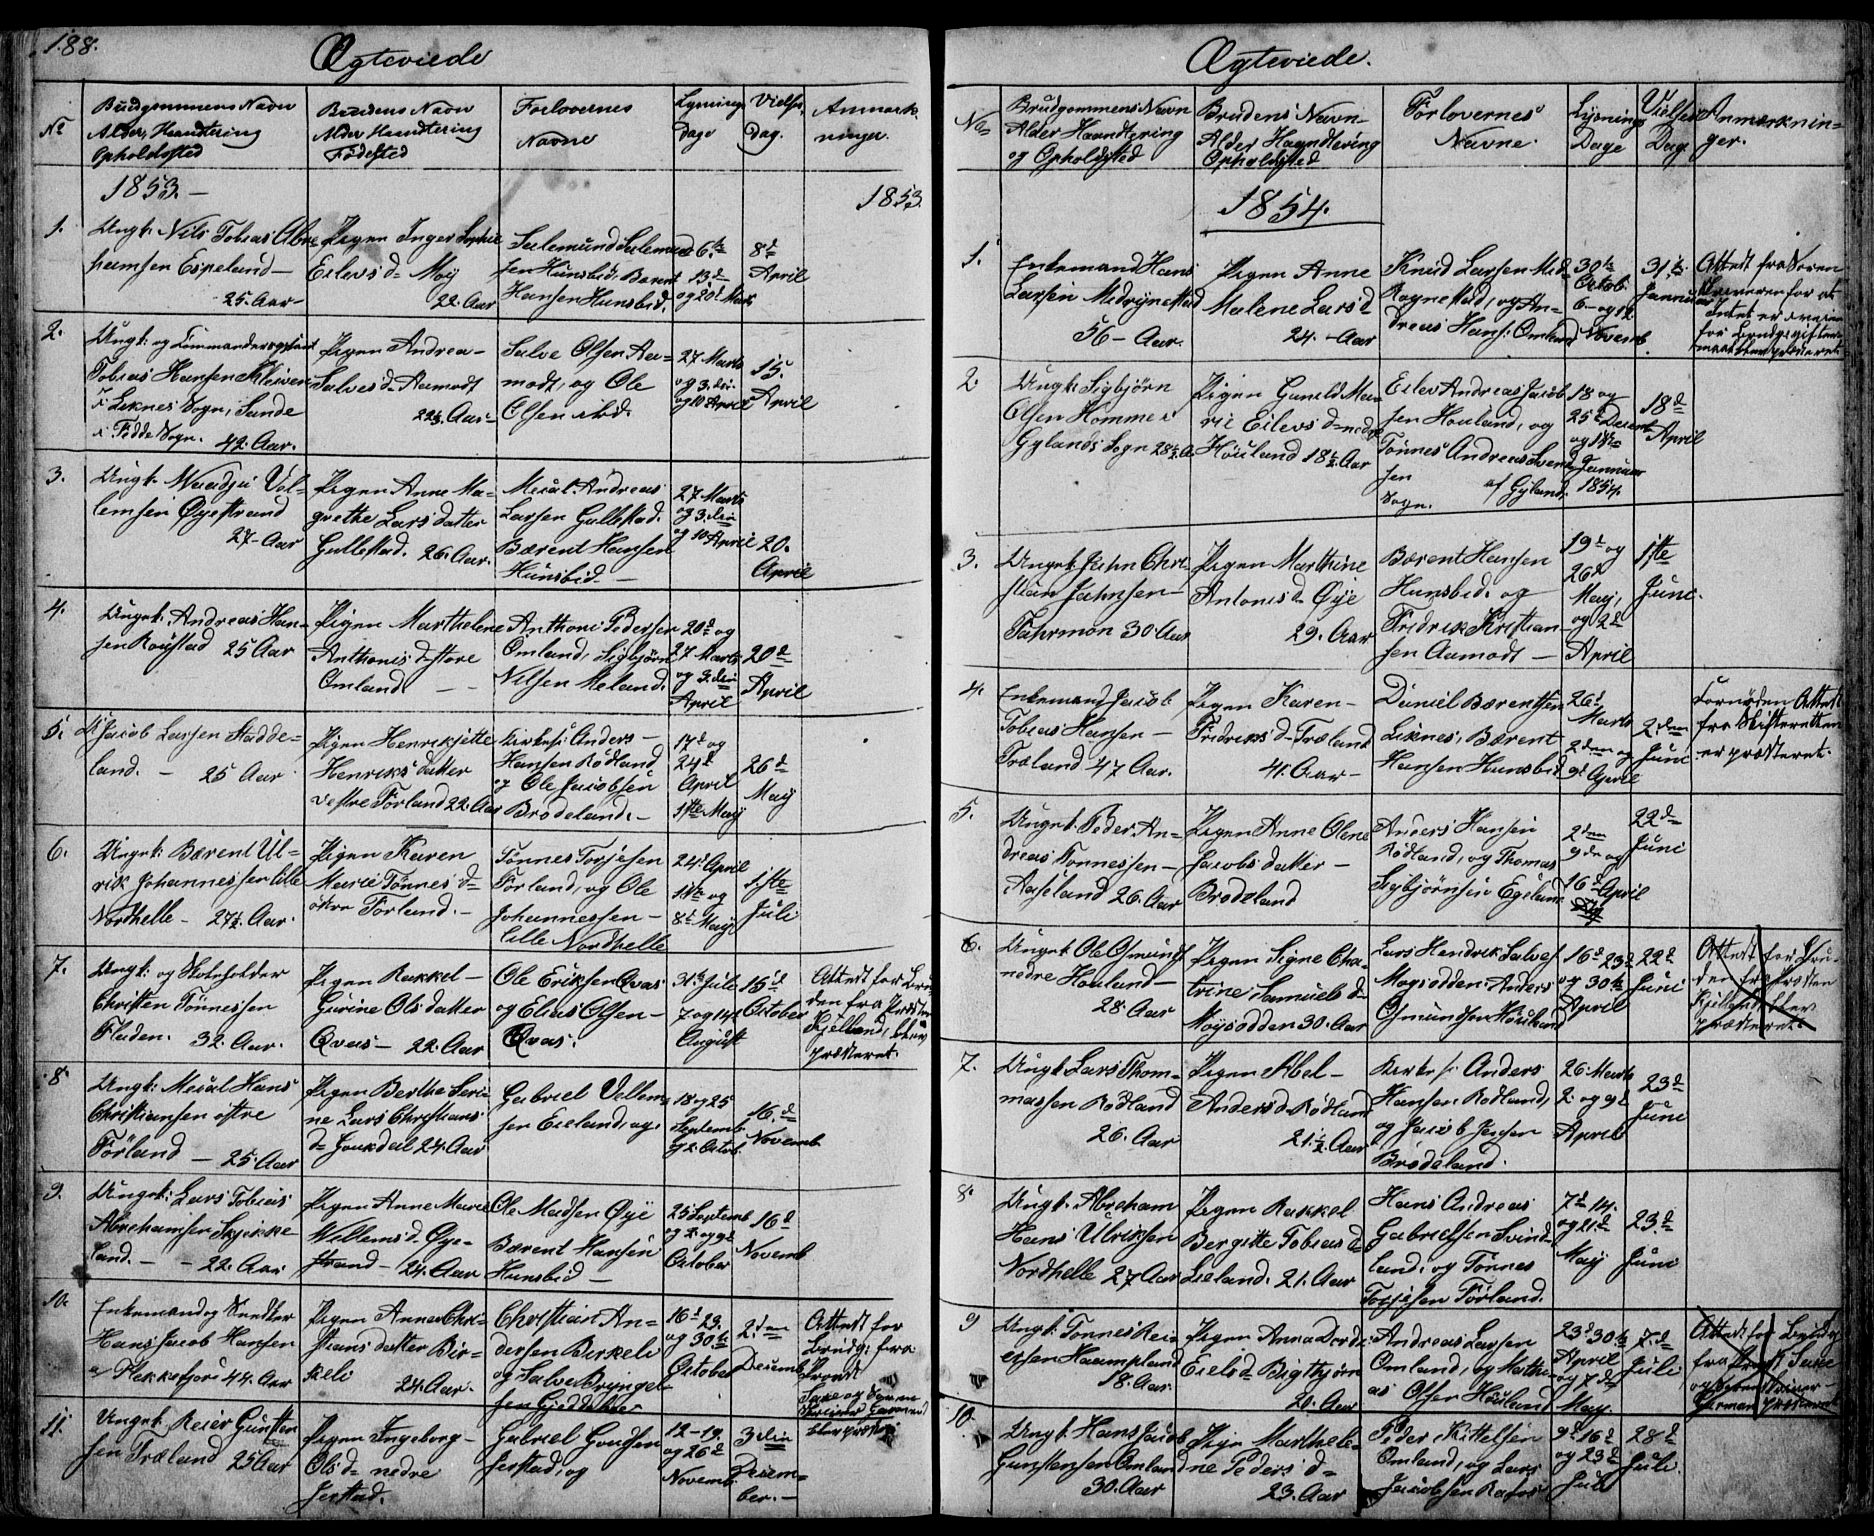 188.
Ægteviede
No
Brudgommens Navn
Alder, Haandtering
Opholdssted
Brudens Navn
Alder Haandtering
Fødested
Forlovernes
Navne
Lysnings
Dage
Vielses
Dag.
Anmærk
ninger.
1853. —
1853.
1.
Ungk: Nils Tobias Abra
hamsen Espeland —
25. Aar —
Pigen Inger Sophie
Eilevsd. Moy
22. Aar
Salemund Salemund
sen Hunsbid. Bærent
Hansen Hunsbid.
6te
13d
og 20d Marts
8d
April
2.
Ungk: og
Tobias Hansen Kleiven
i Liknes Sogn, Sande
i Fedde Sogn. 42. Aar.
Pigen Andrea —
Salvesd. Aamodt
22½ Aar —
Salve Olsen Aa=
modt, og Ole
Olsen ibd.
27 Marts
og 3. die
og 10 April
15.
April
3.
Ungk.
lemsen Øyestrand
27 — Aar
Pigen Anne Ma=
grethe Lars datter
Gullestad. 26. Aar.
Andreas
Larsen Gullestad.
Bærent Hansen
Hunsbid —
27 Marts
og 3. die
og 10 April
20.
April
4.
Ungk. Andreas Han=
sen Røistad 25 Aar
Pigen Marthelene
Anthonisd. store
Omland. — —
Anthoni Pedersen
Omland, Sigbjørn
Nilsen Meland.
20d og
27 Marts
og 3. die
April
20d
April
5.
Jacob Larsen Stadde=
land. — 25 Aar
Pigen Henrikjette
Henriks datter
vestre Førland 22. Aar
Kirkes: Anders —
Hansen Rødland
og Ole Jacobsen
Brødeland. —
17d og
24d
April
1ste May
26d
May
6.
Ungk: Bærent Ul=
rik Johannessen lille
Nordhelle — 27½ Aar.
Pigen Karen
Marie Tønnes d=
østre Førland. —
Tønnes Torjesen
Førland, og Ole
Johannessen —
lille Nordhelle
24d April
1ste og
8d May
1ste
Juli
7.
Ungk: og Skoleholder
Christen Tønnessen
Fladen. 32. Aar.
Pigen Rakkel —
Gurine Ols datter
Qvas — 22. Aar
Ole Eriksen Qvas
og Elias Olsen —
Qvas.
31te Juli
7 og 14d
August
15d
October
Attest for Bru
den fra Præsten
Kjelland, blev
præsteret.
8
Ungk: Hans
Christiansen østre
Førland — 25. Aar
Pigen Berthe Seri=
ne Lars Christians
d= 24. Aar
Gabriel Vellem=
sen Eieland, og.
18 og 25
Septemb.
og 2. Octob.
16.d
Novemb.
9.
Ungk: Lars Tobias
Abrahamsen Skjekke
land. — — 22. Aar.
Pigen Anne Marie
Willemsd. Øye=
strand — 24. Aar
Ole Madsen Øye
Bærent Hansen
Hunsbid —
25 Septemb
og 2. og 9d
October
16d
Novemb
10.
Enkemand og
Hans Jacob Hansen
a/ Flekkefjord 44. Aar
Pigen Anne Chri=
stians datter Bir=
keli 24. Aar.
Christian An=
dersen Birkeli
og Salve Bryngel
sen Gjeddebær
16d 23.
og 30te
October
2.den
Decemb
Attest for
Brudg: fra
Provst
11.
Ungk. Reier Gunsten
sen Træland 25 Aar
Pigen Ingeborg —
Olsd= nedre
Jerstad.
Gabriel
Jerstad, og
12 — 19.
og 26d
Novemb
3 die
Decem=
ber. —
Ægteviede.
No
Brudgommens Navn
Alder Haandtering
og Opholdssted
Brudens Navn
Alder Haandtering
Opholdssted
Forlovernes
Navne.
Lysnings
Dage
Vielses
Dage
Anmærknin=
ger.
1854.
1.
Enkemand Hans
Larsen Medrognestad
56 — Aar.
Pigen Anne
Malene Lars d.
24. — Aar
Knud Larsen Med
Rognestad, og An=
dreas Hans: Omland
30te
Octob.
6 — og 12
Novemb.
31te
Januar
Attest fra Soren
2.
Ungk: Sigbjørn
Olsen Homme i
Gylands Sogn 28½ A
Pigen Gunild Ma=
rie Eilevs d= nedre
Høuland 18½ Aar
Eilev Andreas Jacob
sen Houland, og
Tønnes Andreas
sen af Gyland
Sogn.
18 og
25d Decemb
og 1ste
Januar
1854.
18d
April
3.
Ungk. Jahn Chri=
stian Jahnsen —
Fahrmon 30. Aar
Pigen Marthine
Antonisd. Øye
29. Aar
Bærent Hansen
Hunsbid, og
Fredrik Kristian=
sen Aamodt —
19d og
26d
May,
og 2d
April
1ste
Juni.
4.
Enkemand Jacob
Tobias Hansen —
Træland 47 Aar.
Pigen Karen —
Fredriks d= Træland
41. Aar —
Daniel Bærentsen
Liknes, Bærent
Hansen Hunsbid
26d
Marts
2den og
9d April
2.den
Juni
Fornøden Attest
fra Skifteretten
er præsteret.
5.
Ungk. Peder An=
dreas Tønnessen —
Aaseland 26. Aar
Pigen Anne Olene
Jacobs datter —
Brødeland
Anders Hansen
Rødland, og Thomas
Sigbjørnsen Egeland
2den
9de og
16d April
22d
Juni
6.
Ungk. Ole Osmunds
nedre Houland —
28. Aar
Pigen Signe Cha=
trine Samuels d=
Moysødden 30. Aar
Lars Hendrik Salves
Moysødden. Anders
Osmundsen Høuland
16d 23d
og 30te
April
22d
Juni
Attest for Bru=
den fra Præsten
Kjelland blev
præsteret.
7.
Ungk. Lars Thom=
massen Rødland
26. Aar
Pigen Abel —
Andersd. Rødland
21.½. Aar
Kirkes: Anders
Hansen Rødland,
og Jacob Jensen
Brødeland.
26. Marts
2. og 9d
April
23d
Juni
8.
Ungk: Abraham
Hans Ulriksen
Nordhelle 27 Aar
Pigen Rakkel
Bergitte Tobias d=
Lieland. 21. Aar
Hans Andreas
Gabrielsen Svind=
land, og Tønnes
Torjesen Førland.
7d 14.
og 21d
May
23.d
Juni
9
Ungk: Tønnes Rei=
ersen Haampland
18. Aar.
Pigen Anna Dorth
Eielsd= Bigthjørn
21. Aar
Andreas Larsen
Omland, og Mathi=
as Olsen Høuland
23d 30te
April
og 7.de
May.
7.d
Juli
Attest for Brudg:
fra Provst
præsteret
10.
Ungk. Hans Jacob
Gunstensen Omland
30. Aar
Pigen Marthele=
ne Peders d=
23. Aar
Peder Kittelsen
Omland, og Lars
Jacobsen
9d 16d
og 23d
Juli
28d
Juli.